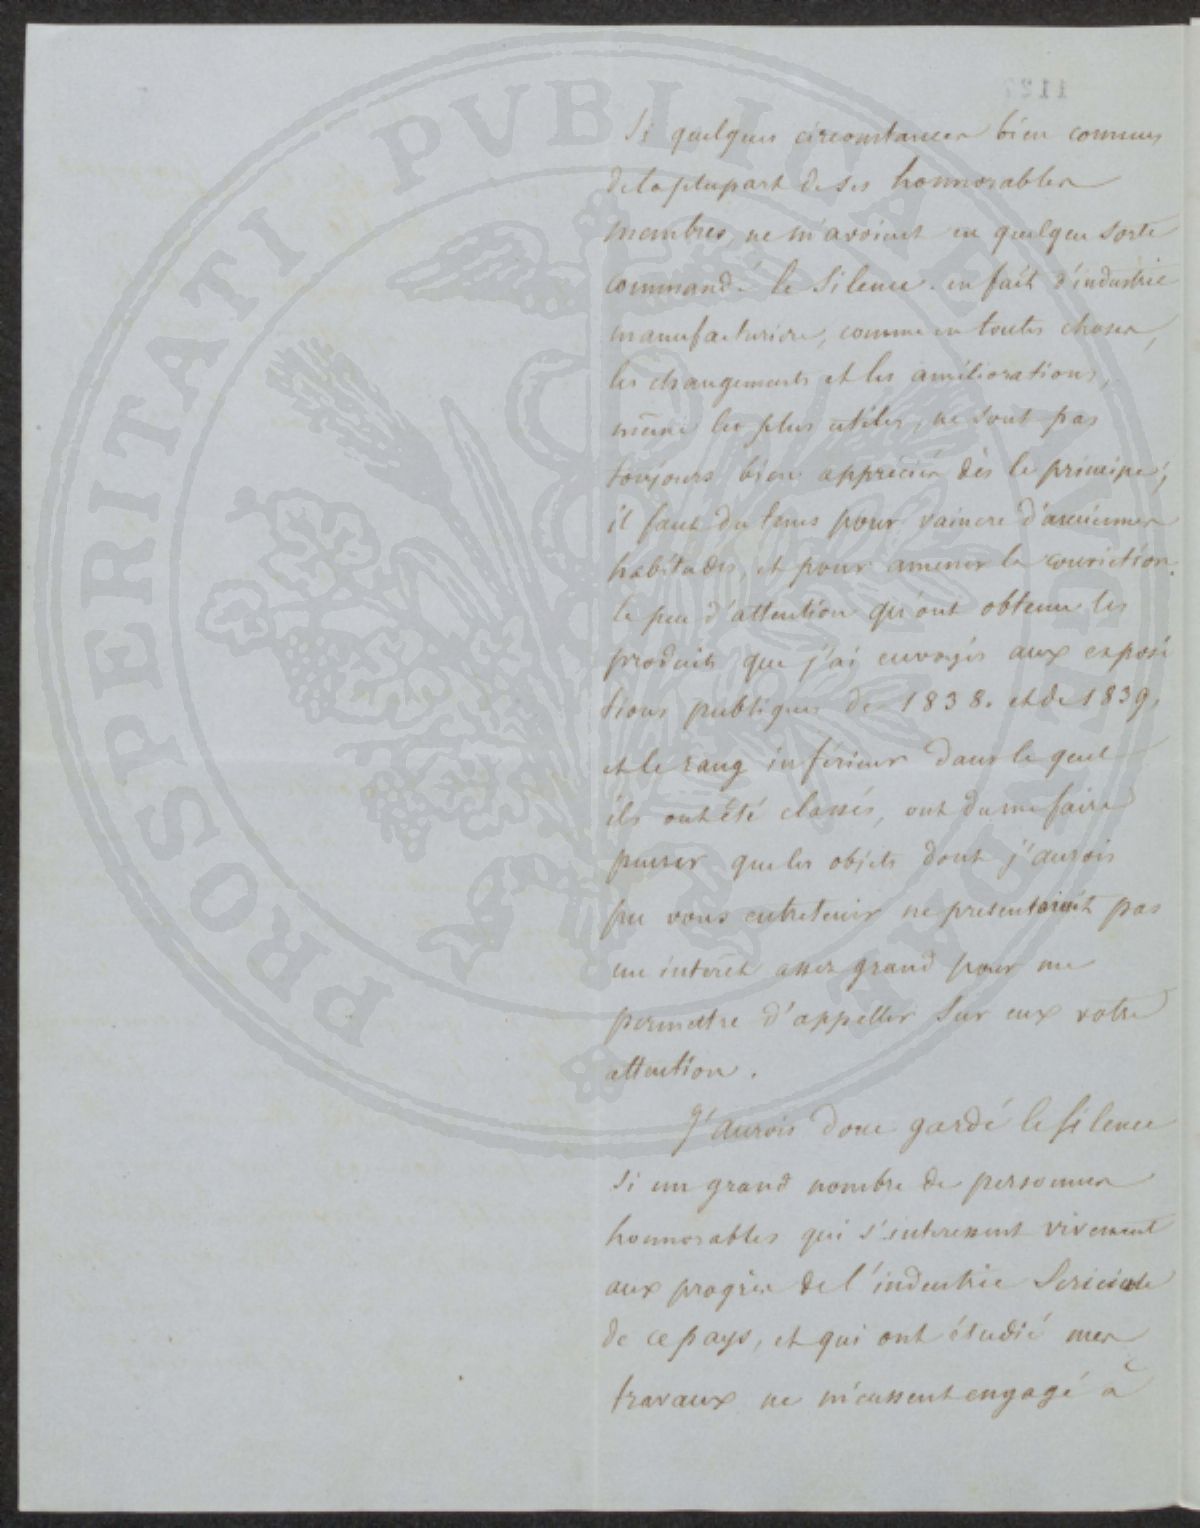 Si quelques circonstances bien connues
de la plupart de ses honnorables
membres, ne m'avoient en quelque sorte
commandé le silence. en fait d'industrie
manufacturiere, comme en toutes choses,
les changements et les améliorations,
même les plus utiles, ne sont pas
toujours bien appréciés dès le principe;
il faut du tems pour vaincre d'anciennes
habitudes, et pour amener la conviction.
le peu d'attention qu'ont obtenu les
produits que j'ai envoyés aux exposi
tions publiques de 1838. et de 1839,
et le rang inférieur dans le quel
ils ont été classés, ont du me faire
penser que les objets dont j'aurois
pu vous entretenir ne presentoient pas
un intérêt assez grand pour me
permettre d'appeller sur eux votre
attention.
J'aurois donc gardé le silence
si un grand nombre de personnes
honnorables qui s'interessent vivement
aux progrès de l'industrie Sericicole
de ce pays, et qui ont étudié mes
travaux ne m'eussent engagé à
PROSPERITATI PVBLICAE AVGENDAE